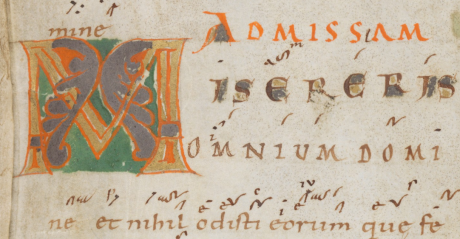 mine
ADMISSAM
MISERERIS
OMNIUM DOMI
ne et nihil odisti eorum que fe